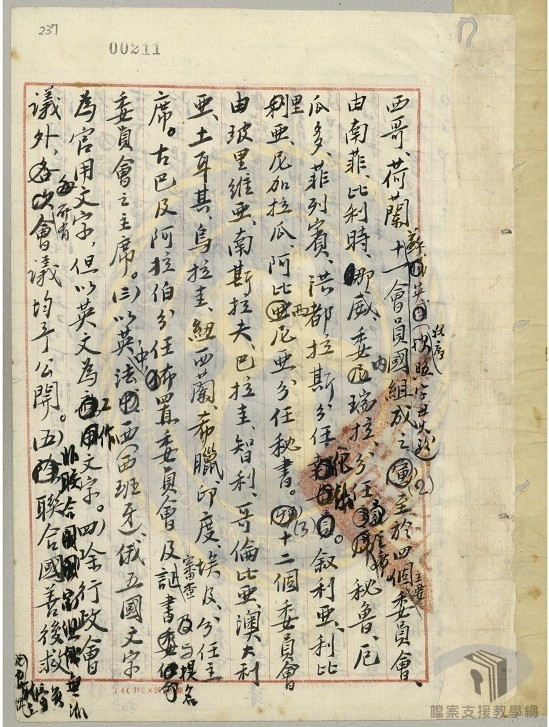 237
00211
西哥、荷蘭十一會員國組成之(2)至於四個委員會、
由南菲、比利時、挪威、委內瑞拉、分任秘魯、厄
瓜多、菲列賓、洪都拉斯分任。敘利亞、利比
里亞、尼加拉瓜、阿比西尼亞分任秘書。(3)十二個委員會
由玻里維亞、南斯拉夫、巴拉圭、智利、哥倫比亞、澳大利
亞、土耳其、烏拉圭、紐西蘭、希臘、印度、埃及、分任主
席。古巴及阿拉伯分任佈置委員會及證書審查及提名
委員會之主席。(三)以英法中西(西班牙)、俄五國文字
為官用文字,但以英文為工作文字。(四)除行政會
議外,所有會議均予公開。(五)聯合國善後救
(按照字母次序)
檔案支援教學網